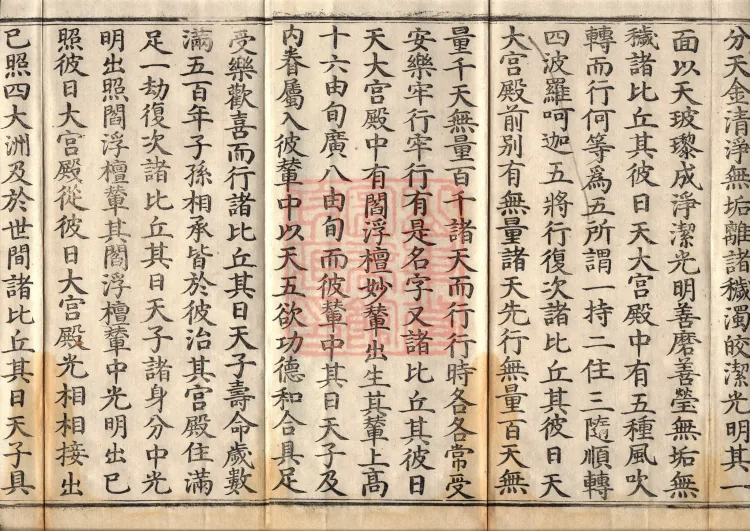 分天金清淨無垢離諸穢濁皎潔光明其一
面以天玻瓈成淨潔光明善磨善瑩無垢無
穢諸比丘其彼日天大宮殿中有五種風吹
轉而行何等爲五所謂一持二住三隨順轉
四波羅呵迦五將行復次諸比丘其彼日天
大宮殿前別有無量諸天先行無量百天無
量千天無量百千諸天而行行時各各常受
安樂牢行牢行有是名字又諸比丘其彼日
天大宮殿中有閻浮檀妙輦出生其輦上高
十六由旬廣八由旬而彼輦中其日天子及
內眷屬入彼輦中以天五欲功德和合具足
受樂歡喜而行諸比丘其日天子壽命歲數
滿五百年子孫相承皆於彼治其宮殿住滿
足一劫復次諸比丘其日天子諸身分中光
明出照閻浮檀輦其閻浮檀輦中光明出已
照彼日大宮殿從彼日大宮殿光相相接出
已照四大洲及於世間諸比丘其日天子具